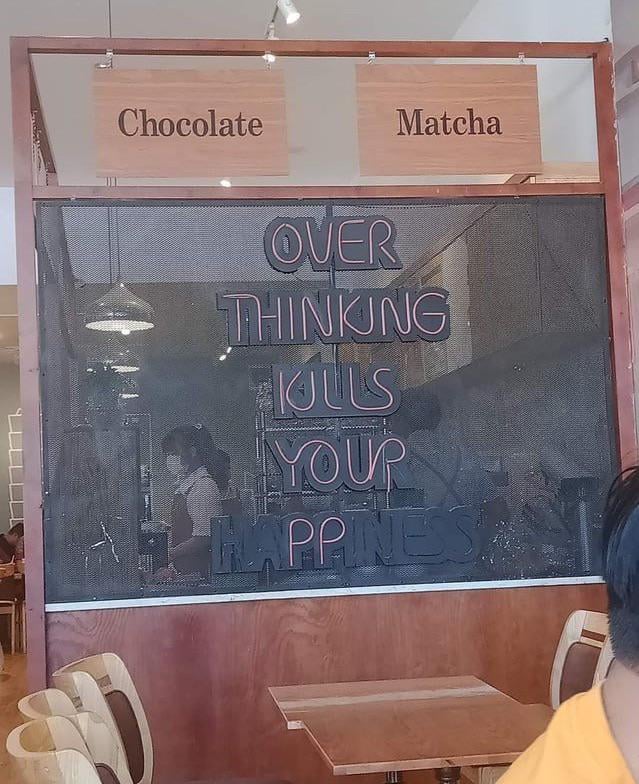 Chocolate
Matcha
OVER
THINKING
KILLS
YOUR
HAPPINESS